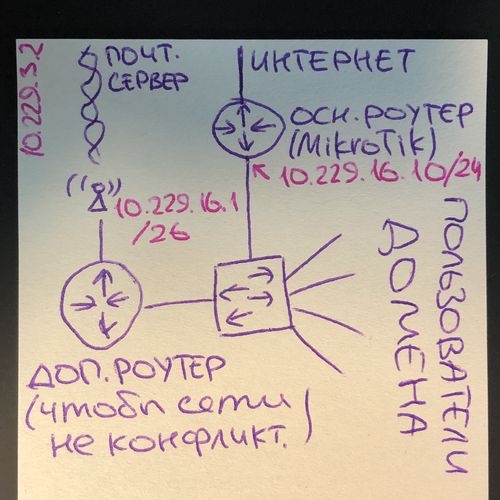 10.229.3.2
ПОЧТ.
СЕРВЕР
ИНТЕРНЕТ
ОСН.РОУТЕР
(MikroTik)
10.229.16.10/24
10.229.16.1
/26
ПОЛЬЗОВАТЕЛИ
ДОМЕНА
ДОП.РОУТЕР
(чтобы сети
не конфликт.)